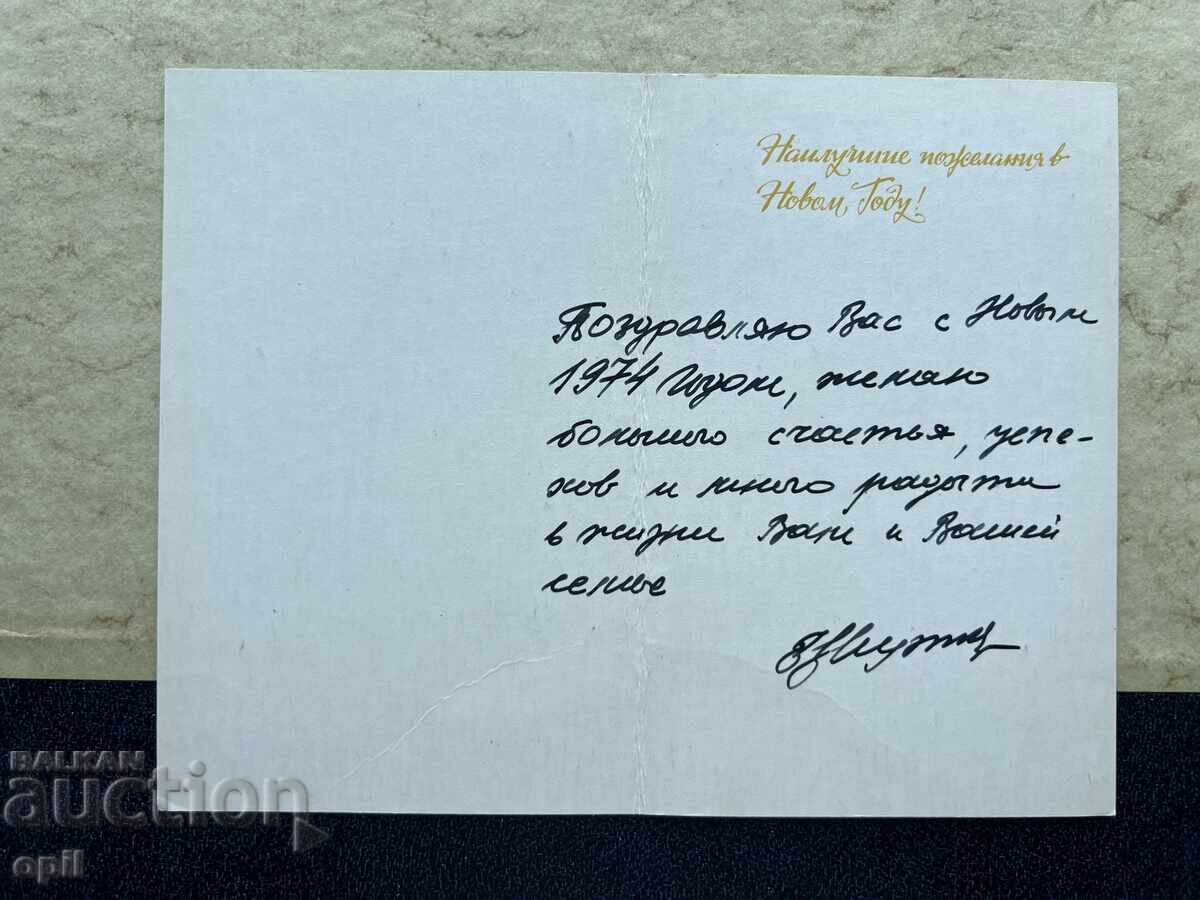 Наилучшие пожелания в
Новом Году!
Поздравляю Вас с Новым
1974 Годом, желаю
большого счастья, успе-
хов и много радости
в жизни Вам и Вашей
семье
BALKAN
auction
opil